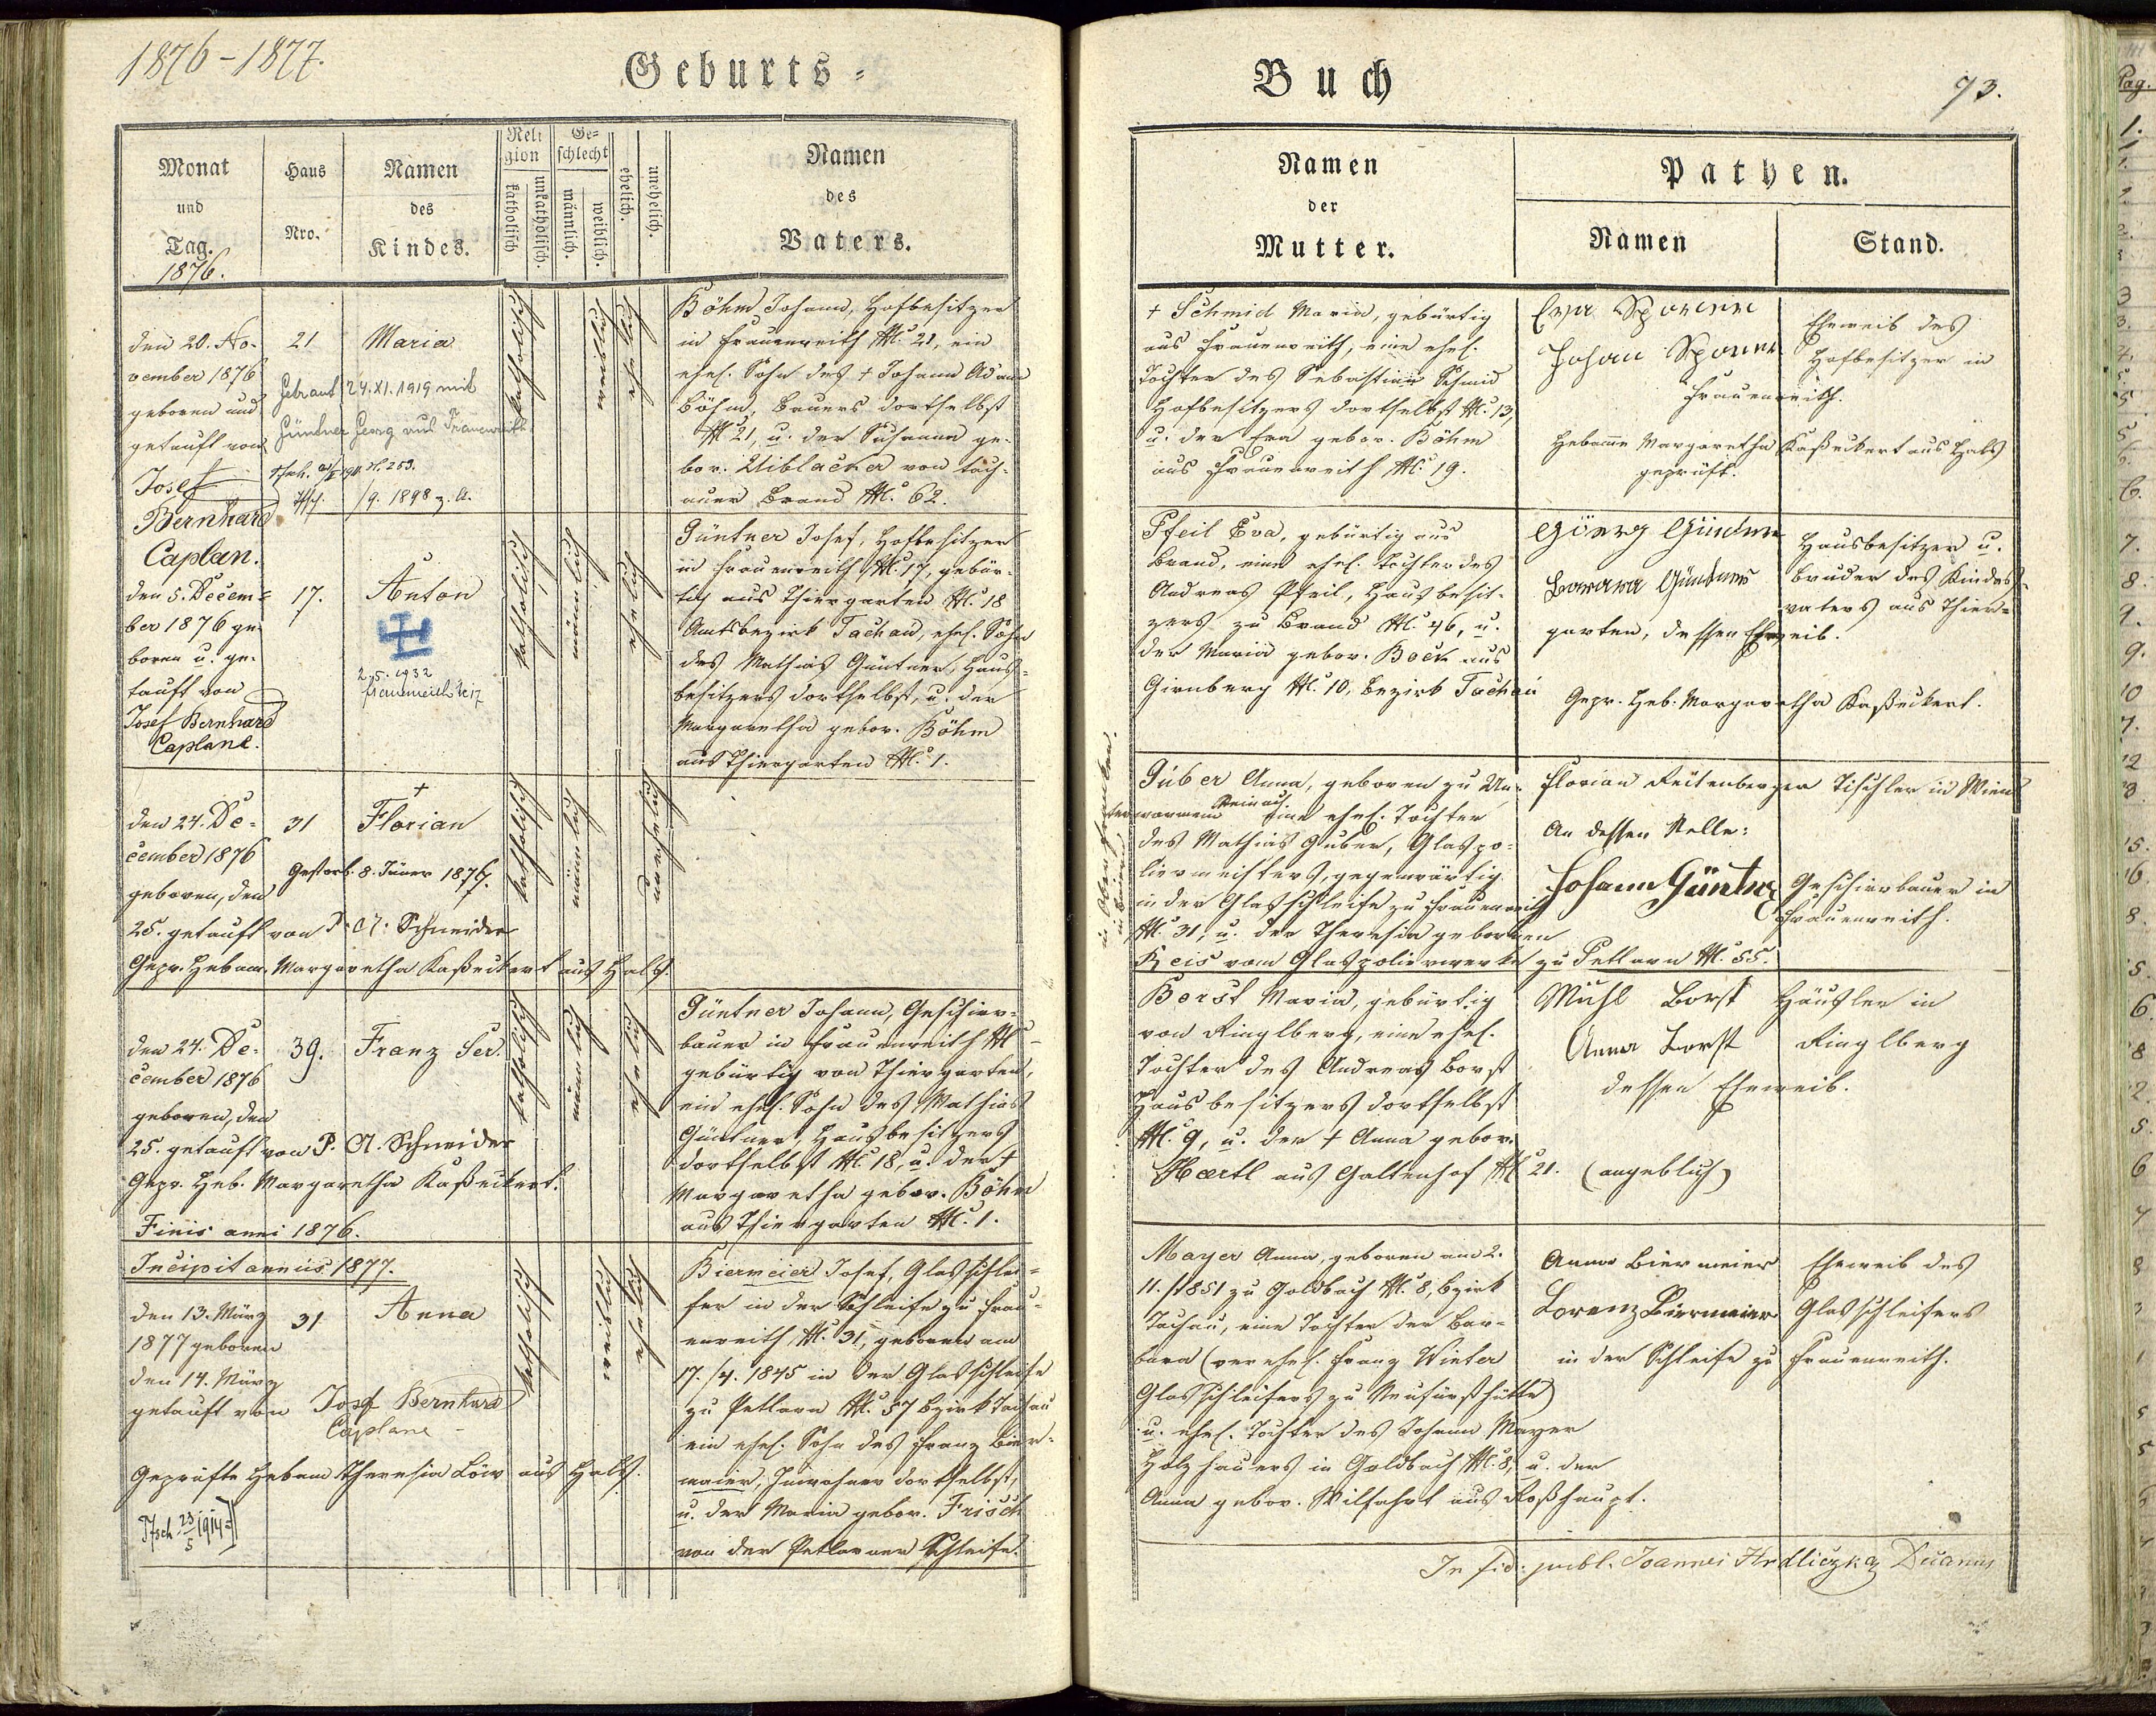 1876-1877.
Geburts-
Monat
und
Tag.
1876.
Haus
Nro.
Namen
des
Kindes.
Religion
katholisch
unkatholisch.
Geschlecht
männlich.
weiblich.
ehelich.
unehelich.
Namen
des
Vaters.
den 20. No-
vember 1876
geboren und
getauft von
Josef
Bernhard
Caplan.
21
Maria
Getraut 24.XI.1919 mit
Güntner Georg aus Frauenreith
/9. 1898 z. A.
katholisch
weiblich
ehelich
Böhm Johann, Hofbesitzer
in Frauenreith № 21, ein
ehel. Sohn des + Johann Adam
Böhm, Bauers dortselbst
№ 21, u. der Susanna ge-
bor. Uiblacker von Tach-
auer Brand № 62.
den 5. Decem-
ber 1876 ge-
boren u. ge-
tauft von
Josef Bernhard
Caplane.
17.
Anton
2.5.1932
Frauenreith № 17
katholisch
männlich
ehelich
Güntner Josef, Hofbesitzer
in Frauenreith № 17, gebür-
tig aus Thiergarten № 18
Amtsbezirk Tachau, ehel. Sohn
des Mathias Güntner, Haus-
besitzers dortselbst, u. der
Margaretha gebor. Böhm
aus Thiergarten № 1.
den 24. De-
cember 1876
geboren, den
25. getauft von P. A. Schneider
Gepr. Hebam. Margaretha Kaßeckert aus Hals.
31
+
Florian
Gestorb. 8. Jäner 1877.
katholisch
männlich
unehelich
den 24. De-
cember 1876
geboren, den
25. getauft von P. A. Schneider
Gepr. Heb. Margaretha Kaßeckert.
39.
Franz Ser.
katholisch
männlich
ehelich
Güntner Johann, Geschirr-
bauer in Frauenreith №
gebürtig von Thiergarten,
ein ehel. Sohn des Mathias
Güntner, Hausbesitzers
dortselbst № 18, u. der +
Margaretha gebor. Böhm
aus Thiergarten № 1.
Finis anni 1876.
Incipit annus 1877.
den 13. März
1877 geboren
den 14. März
getauft von Josef Bernhard
Caplane
31
Anna
katholisch
weiblich
ehelich
Geprüfte Hebam Theresia Löw aus Hals.
Tfsch. 23/5 1914
Biermeier Josef, Glasschlei-
fer in der Schleife zu Frau-
enreith, № 31, geboren am
17./4. 1845 in der Glasschleife
zu Petlarn № 57 Bezirk Tachau
ein ehel. Sohn des Franz Bier-
maier, Inwohner dortselbst,
u. der Maria gebor. Frisch
von der Petlarner Schleife.
Buch
73.
Namen
der
Mutter.
Pathen.
Namen
Stand.
+ Schmid Maria, gebürtig
aus Frauenreith, eine ehel.
Tochter des Sebastian Schmid
Hofbesitzers dortselbst № 13,
u. der Eva gebor. Böhm
aus Frauenreith № 19.
Johann
Eheweib des
Hofbesitzer in
Frauenreith.
Hebamme Margaretha Kaßeckert aus Hals
geprüft.
Pfeil Eva, gebürtig aus
Brand, eine ehel. Tochter des
Andreas Pfeil, Hausbesit-
zers zu Brand № 46, u.
der Maria gebor. Bock aus
Girnberg № 10, Bezirk Tachau
Görg Güntner
Barbara Güntner
Hausbesitzer u.
Bruder des Kindes-
vaters aus Thier-
garten, dessen Eheweib.
Gepr. Heb. Margaretha Kaßeckert.
Guber Anna, geboren zu Un-
eine ehel. Tochter
des Mathias Guber, Glaspo-
liermeisters, gegenwärtig
in der Glasschleife zu Frauenreith
№ 31, u. der Theresia gebornen
Reis vom Glaspolierwerke zu Petlarn № 55.
Florian Reitenberger Tischler in Wien
An dessen Stelle:
Johann Güntner
Geschirrbauer in
Frauenreith.
Borst Maria, gebürtig
von Ringlberg, eine ehel.
Tochter des Andreas Borst
Hausbesitzers dortselbst
№ 9, u. der + Anna gebor.
Haertl aus Galtenhof № 21. (angeblich)
Michl Borst
Anna Borst
dessen Eheweib.
Häusler in
Ringlberg
Mayer Anna, geboren am 2.
11. 1851 zu Goldbach № 8, Bezirk
Tachau, eine Tochter der Bar-
bara (verehel. Franz Winter
Glasschleifers zu Neufürsthütte)
u. ehel. Tochter des Johann Mayer
Holzhauers in Goldbach № 8, u. der
Anna gebor. Wilfahrt aus Roßhaupt.
Anna Biermeier
Lorenz Biermeier
in der Schleife zu Frauenreith.
Eheweib des
Glasschleifers
In fid: publ. Joannes Hrdliczka Decanus
Pag.